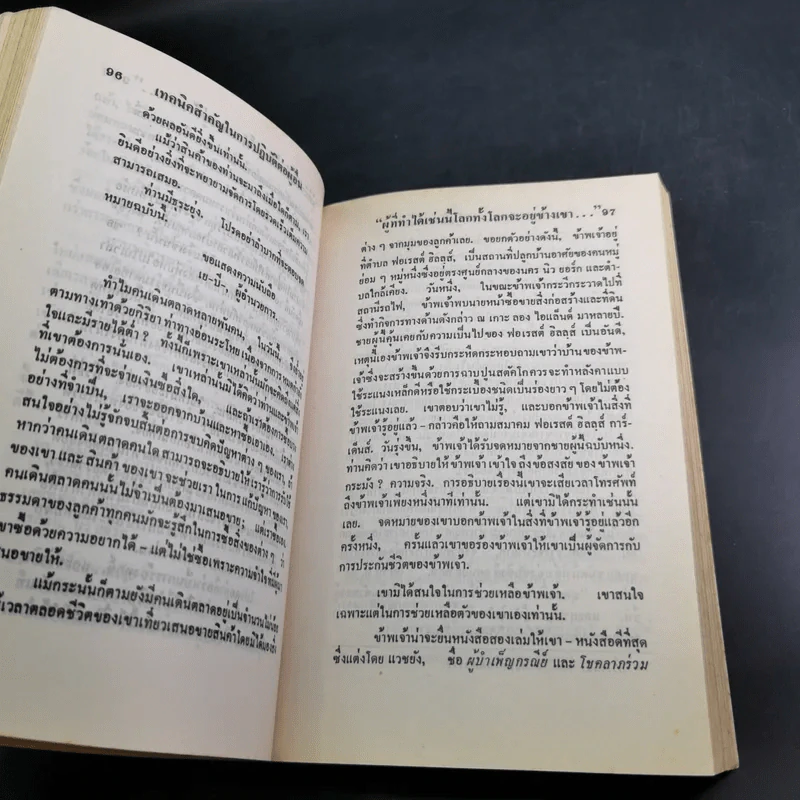 96
เทคนิคสำคัญในการปฏิบัติต่อผู้อื่น
ด้วยผลอันดียิ่งขึ้นเท่านั้น.
แม้ว่าสินค้าของท่านจะมาถึงเมื่อใดก็ตาม, เรา
ยินดีอย่างยิ่งที่จะพยายามจัดการโดยรวดเร็วเต็มความ
สามารถเสมอ.
ท่านมีธุระยุ่ง. โปรดอย่าลำบากที่จะตอบจด
หมายฉบับนี้.
ขอแสดงความนับถือ
เย–บี–, ผู้อำนวยการ.
ทำไมคนเดินตลาดหลายพันคน, ในวันนี้, จึงย่ำ
ตามทางเท้าด้วยกิริยา ท่าทางอ่อนระโหย เนื่องจากการหมดกำลัง
ใจและมีรายได้ต่ำ? ทั้งนี้ก็เพราะเขาเหล่านั้นมัวจะคิดถึงแต่สิ่ง
ที่เขาต้องการนั่นเอง. เขาเหล่านั้นมิได้คิดว่าท่านและข้าพเจ้า
ไม่ต้องการที่จะจ่ายเงินซื้อสิ่งใด, และถ้าเราต้องการซื้อของ
อย่างที่จำเป็น, เราจะออกจากบ้านและหาซื้อเอาเอง.
สนใจอย่างไม่รู้จักจบสิ้นต่อการขบคิดปัญหาต่าง ๆ ของเรา,
หากว่าคนเดินตลาดคนใด สามารถจะอธิบายให้เรารู้ว่าการใช้
ของเขา และ สินค้า ของเขา จะช่วยเรา ในการแก้ปัญหา ของเรา,
คนเดินตลาดคนนั้นไม่จำเป็นต้องมาเสนอขาย; แต่เราซื้อเอง
ธรรมดาของลูกค้าทุกคนมักจะรู้สึกในการซื้อสิ่งของต่าง ๆ ว่า
เขาซื้อด้วยความอยากได้ – แต่ไม่ใช่ซื้อเพราะความจำใจที่มีผู้มา
เสนอขายให้.
แม้กระนั้นก็ตามยังมีคนเดินตลาดอยู่เป็นจำนวนไม่น้อย
ใช้เวลาตลอดชีวิตของเขาเที่ยวเสนอขายสินค้าโดยมิได้มองสิ่ง
“ผู้ที่ทำได้เช่นนี้โลกทั้งโลกจะอยู่ข้างเขา...” 97
ต่าง ๆ จากมุมของลูกค้าเลย. ขอยกตัวอย่างดังนี้, ข้าพเจ้าอยู่
ที่ตำบล ฟอเรสต์ ฮิลลส์, เป็นสถานที่ปลูกบ้านอาศัยของคนหมู่
ย่อม ๆ หมู่หนึ่งซึ่งอยู่ตรงศูนย์กลางของนคร นิว ยอร์ก และตำ–
บลใกล้เคียง. วันหนึ่ง, ในขณะข้าพเจ้ากระวีกระวาดไปที่
สถานีรถไฟ, ข้าพเจ้าพบนายหน้าซื้อขายสิ่งก่อสร้างและที่ดิน
ซึ่งทำกิจการทางด้านดังกล่าว ณ เกาะ ลอง ไอแลนด์ มาหลายปี.
ชายผู้นี้คุ้นเคยกับความเป็นไปของ ฟอเรสต์ ฮิลลส์ เป็นอันดี,
เหตุนี้เองข้าพเจ้าจึงรีบกระหืดกระหอบถามเขาว่าบ้านของข้าพ–
เจ้าซึ่งจะสร้างขึ้นด้วยการฉาบปูนสตัคโกควรจะทำหลังคาแบบ
ใช้ระแนงเหล็กดีหรือใช้กระเบื้องชนิดเป็นร่องยาว ๆ โดยไม่ต้อง
ใช้ระแนงเลย. เขาตอบว่าเขาไม่รู้, และบอกข้าพเจ้าในสิ่งที่
ข้าพเจ้ารู้อยู่แล้ว – กล่าวคือให้ถามสมาคม ฟอเรสต์ ฮิลลส์ การ์–
เด็นส์. วันรุ่งขึ้น, ข้าพเจ้าได้รับจดหมายจากชายผู้นั้นฉบับหนึ่ง.
ท่านคิดว่า เขาอธิบายให้ ข้าพเจ้า เข้าใจ ถึง ข้อสงสัย ของ ข้าพเจ้า
กระมัง? ความจริง. การอธิบายเรื่องนี้เขาจะเสียเวลาโทรศัพท์
ถึงข้าพเจ้าเพียงหนึ่งนาทีเท่านั้น. แต่เขามิได้กระทำเช่นนั้น
เลย. จดหมายของเขาบอกข้าพเจ้าในสิ่งที่ข้าพเจ้ารู้อยู่แล้วอีก
ครั้งหนึ่ง, ครั้นแล้วเขาขอร้องข้าพเจ้าให้เขาเป็นผู้จัดการกับ
การประกันชีวิตของข้าพเจ้า.
เขามิได้สนใจในการช่วยเหลือข้าพเจ้า. เขาสนใจ
เฉพาะแต่ในการช่วยเหลือตัวของเขาเองเท่านั้น.
ข้าพเจ้าน่าจะยื่นหนังสือสองเล่มให้เขา – หนังสือดีที่สุด
ซึ่งแต่งโดย แวชยัง, ชื่อ ผู้บำเพ็ญกรณีย์ และ โชคลาภร่วม